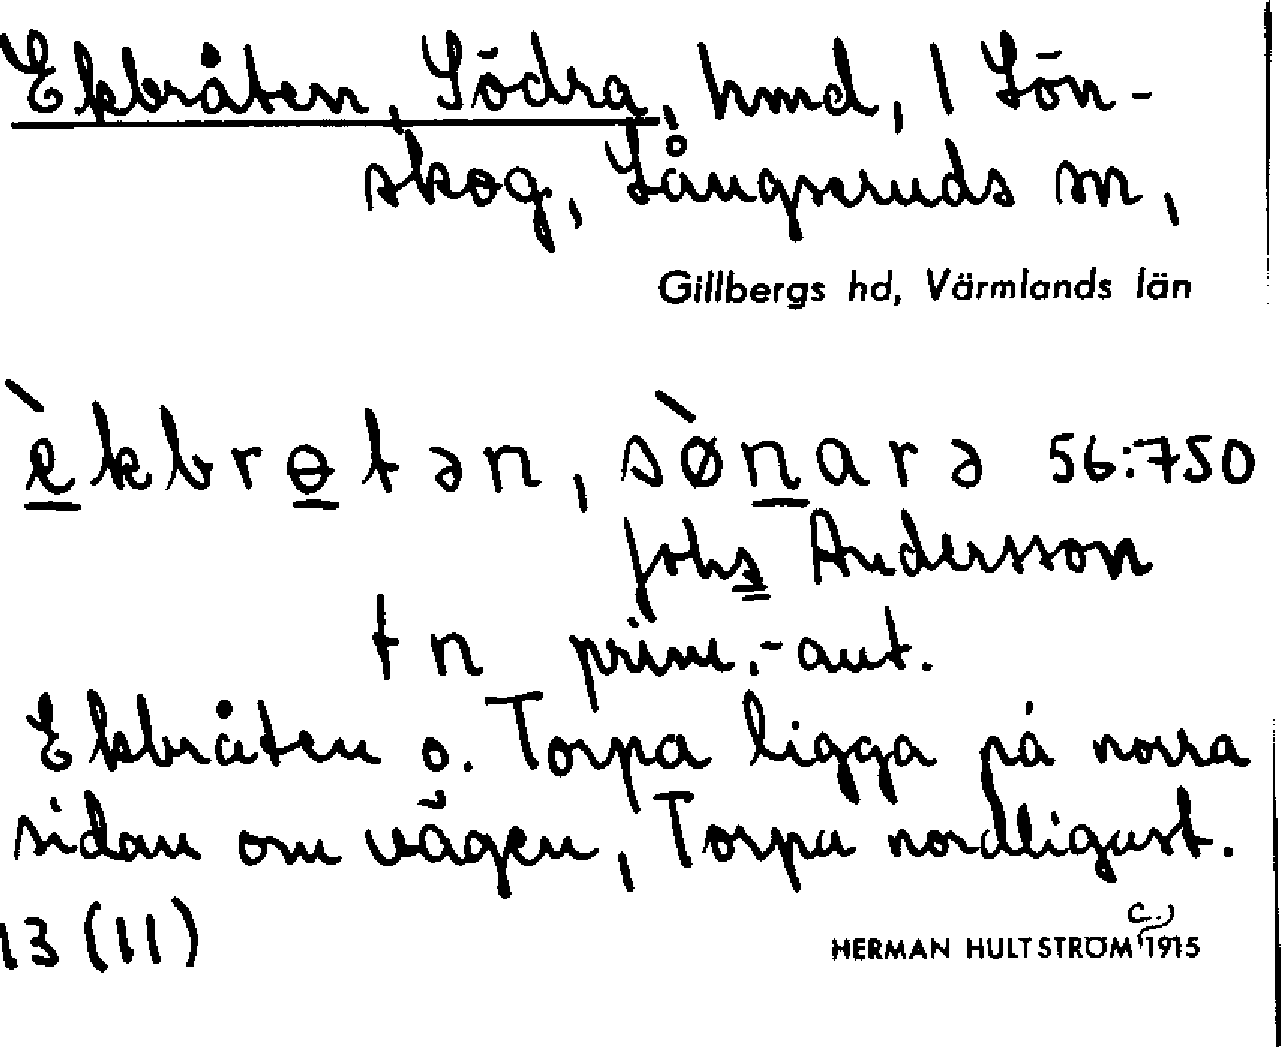 Ekbråten, Södra, hmd, 1 Sön-
skog, Långseruds sn,
Gillbergs hd, Värmlands län
èkbrɵtən, sø̀narə 56:750
Johs Andersson
tn prim.-aut.
Ekbråten o. Torpa ligga på norra
sidan om vägen, Torpa nordligast.
13 (11)
HERMAN HULTSTRÖM (c.) 1915